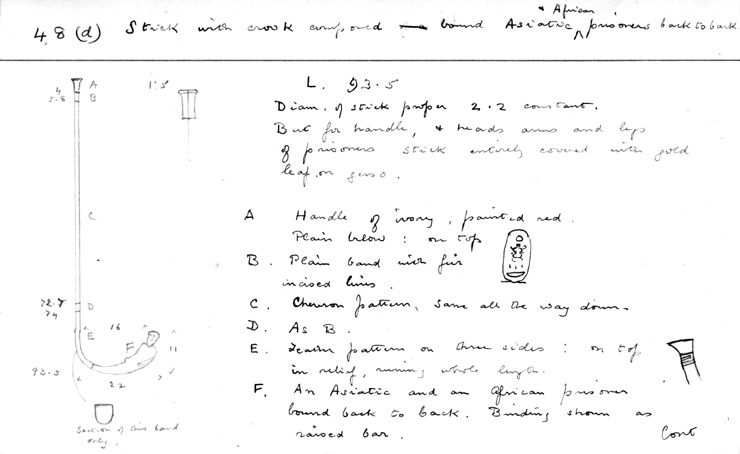 + African
48 (d) Stick with crook composed bound Asiatic ^ prisoners back to back.
A
B
4
5.8
1:5
L. 93.5
Diam. of stick proper 2.2 constant.
But for handle, + heads arms and legs
of prisoners stick entirely covered with gold
leaf on gesso.
C
A Handle of ivory, painted red.
Plain below: on top
B. Plain band with five
incised lines.
C. Chevron pattern, same all the way down.
D. As B.
E. Feather pattern on three sides: on top
in relief, running whole length.
F. An Asiatic and an African prisoner
bound back to back. Binding shown as
raised bar.
Cont
72.7
74
D
E
16
F
11
93.5
22
Section of this band
only.